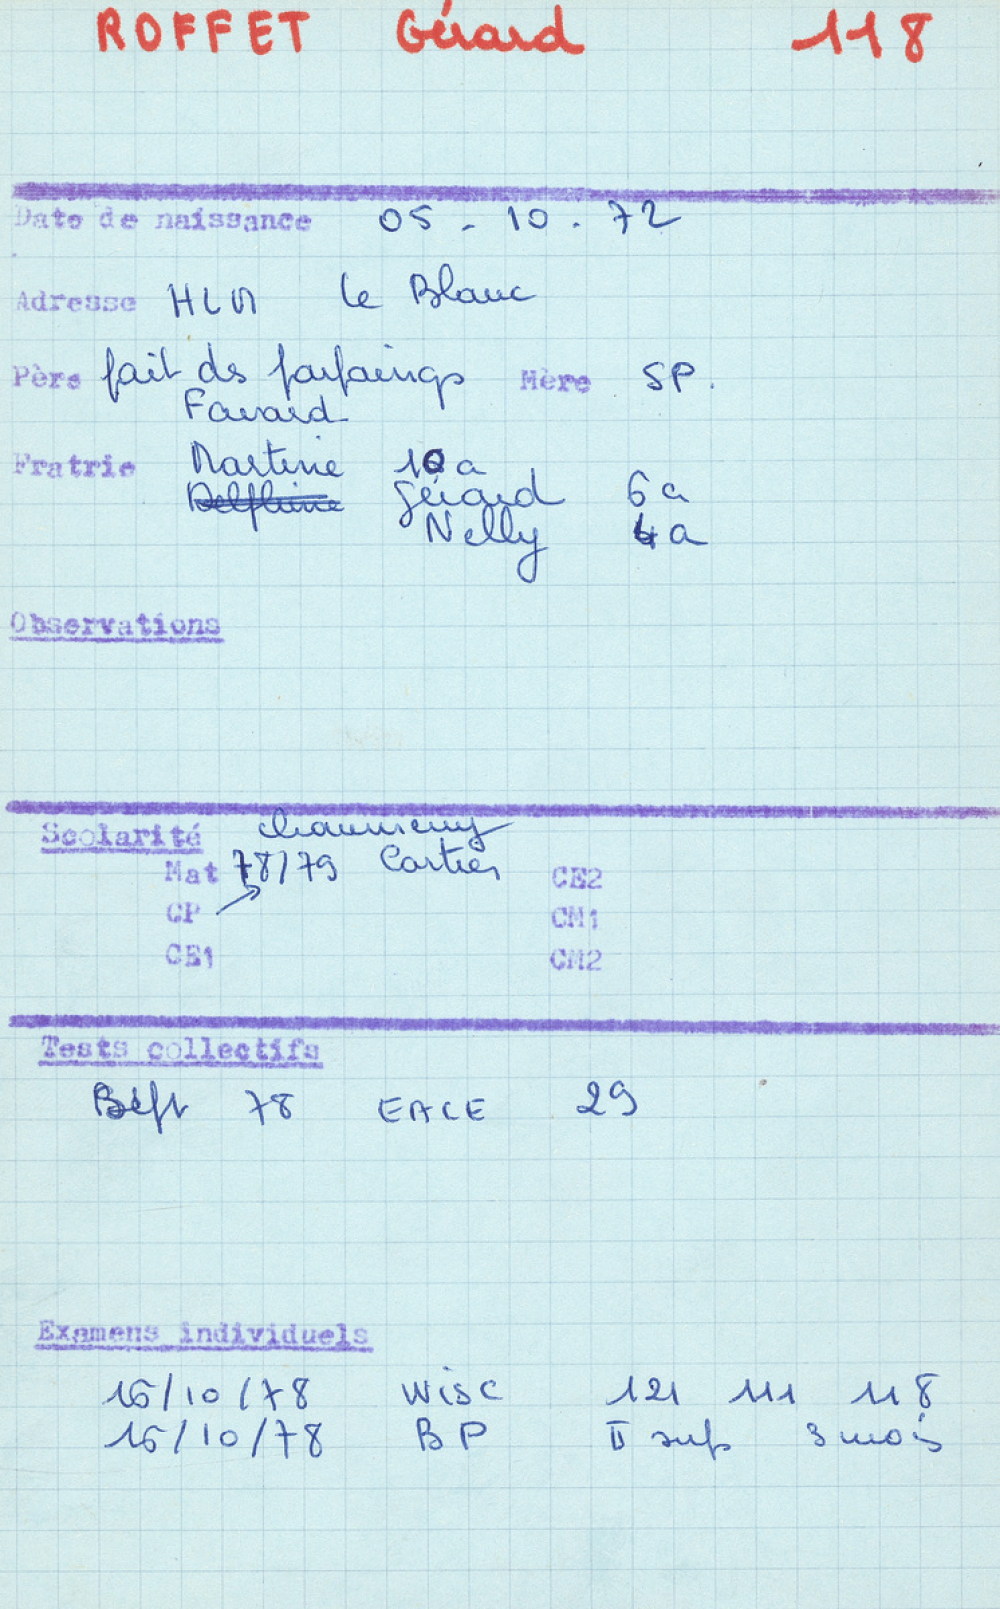 ROFFET Gérard 118
Date de naissance 05 - 10 . 72
Adresse HLM Le Blanc
Père fait des parpaings Mère SP.
Favard
Fratrie Martine 10 a
Delphine Gérard 6 a
Nelly 4 a
Observations
Scolarité
Mat 78/79 Cartier CE2
CP CM1
CE1 CM2
Tests collectifs
78 EACE 29
Examens individuels
16/10/78 WISC 121 111 118
16/10/78 BP II sup 3 mois